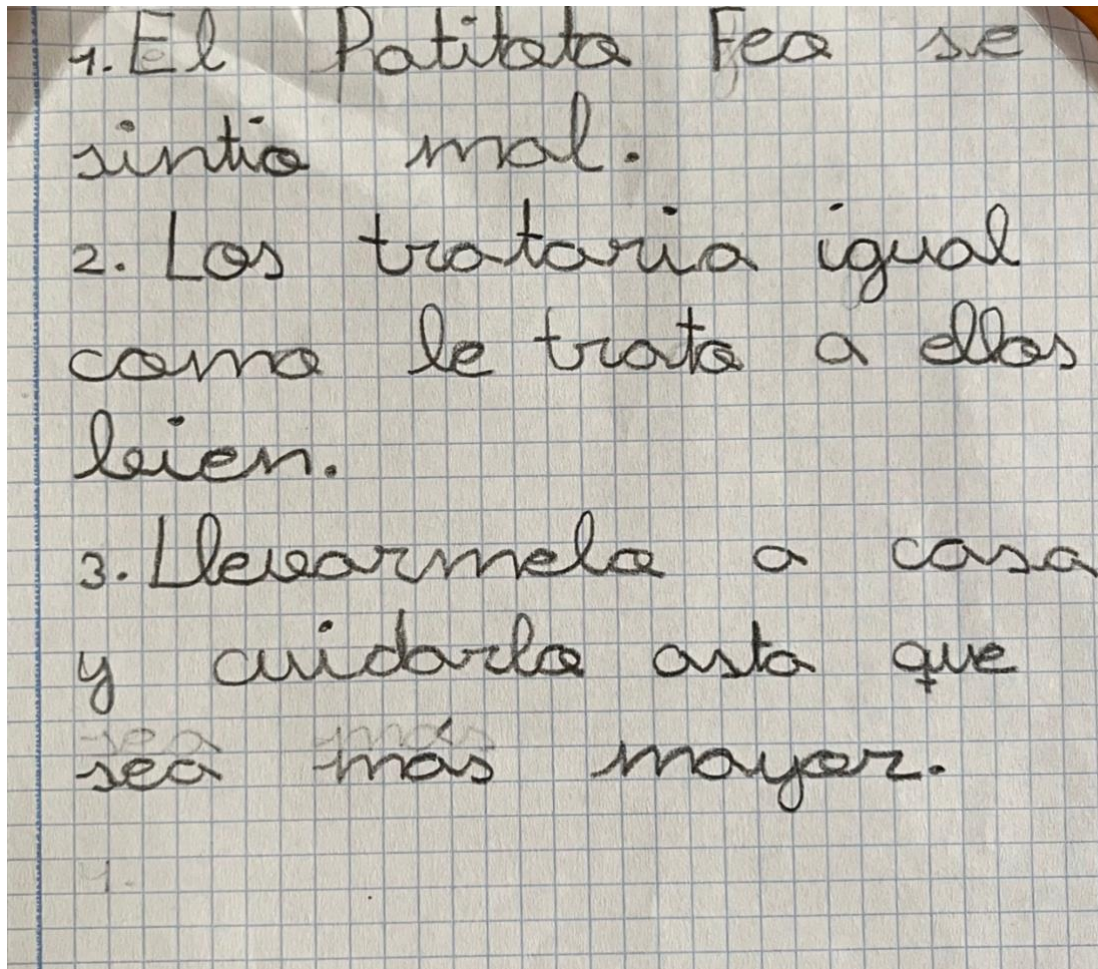 1. El Patitoto Feo se
sintio mal.
2. Los trataria igual
como le trato a ellos
bien.
3. Llevarmelo a casa
y cuidarlo asta que
sea más mayor.
4.